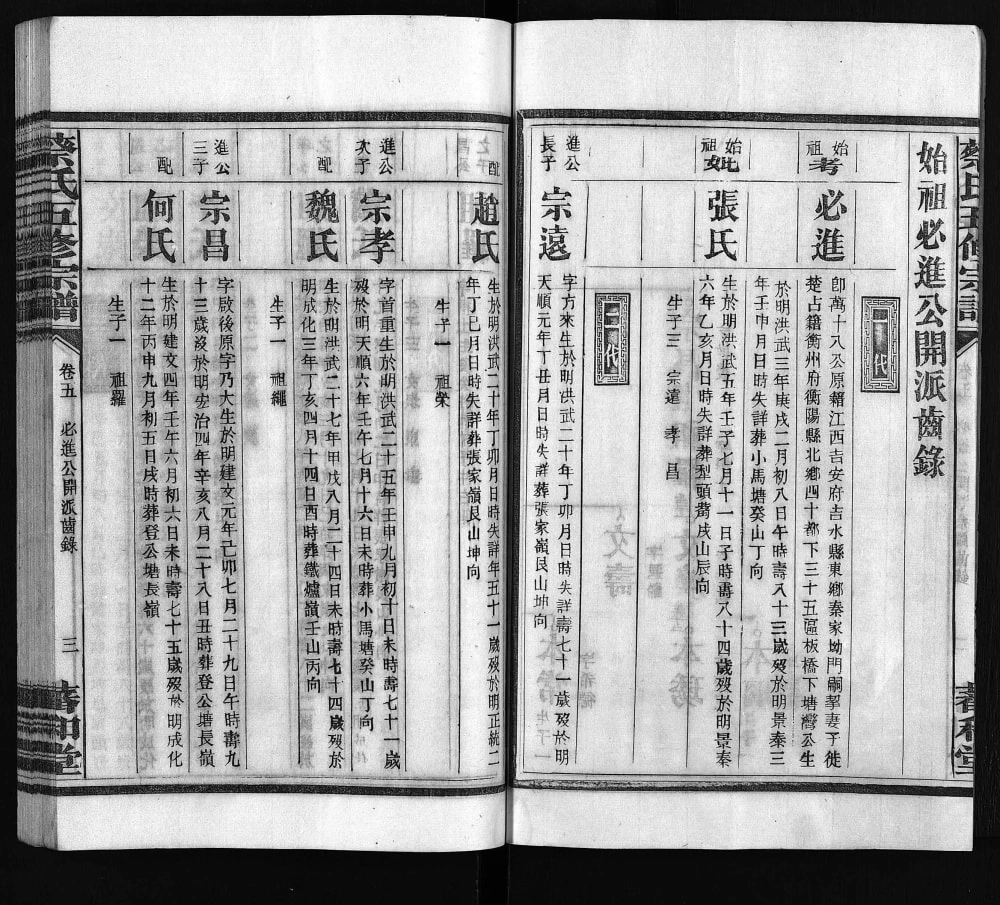 始祖必進公開派齒錄
一代
始祖考
必進
卽萬十八公原籍江西吉安府吉水縣東鄉秦家坳門嗣挈妻子徙
楚占籍衡州府衡陽縣北鄉四十都下三十五區板橋下塘灣公生
於明洪武三年庚戌二月初八日午時壽八十三歲歿於明景泰三
年壬申月日時失詳葬小馬塘癸山丁向
始祖妣
張氏
生於明洪武五年壬子七月十一日子時壽八十四歲歿於明景泰
六年乙亥月日時失詳葬犁頭觜戌山辰向
生子三 宗遠 孝 昌
二代
進公長子
宗遠
字方來生於明洪武二十年丁卯月日時失詳壽七十一歲歿於明
天順元年丁丑月日時失詳葬張家嶺艮山坤向
配
趙氏
生於明洪武二十年丁卯月日時失詳年五十一歲歿於明正統二
年丁巳月日時失詳葬張家嶺艮山坤向
生子一 祖榮
進公次子
宗孝
字首重生於明洪武二十五年壬申九月初十日未時壽七十一歲
歿於明天順六年壬午七月十六日未時葬小馬塘癸山丁向
配
魏氏
生於明洪武二十七年甲戌八月二十四日未時壽七十四歲歿於
明成化三年丁亥四月十四日酉時葬鐵爐嶺壬山丙向
生子一 祖繩
進公三子
宗昌
字啟後原字乃大生於明建文元年己卯七月二十九日午時壽九
十三歲歿於明宏治四年辛亥八月二十八日丑時葬登公塘長嶺
配
何氏
生於明建文四年壬午六月初六日未時壽七十五歲歿於明成化
十二年丙申九月初五日戌時葬登公塘長嶺
生子一 祖羅
蔡氏五修宗譜
卷五
必進公開派齒錄
三